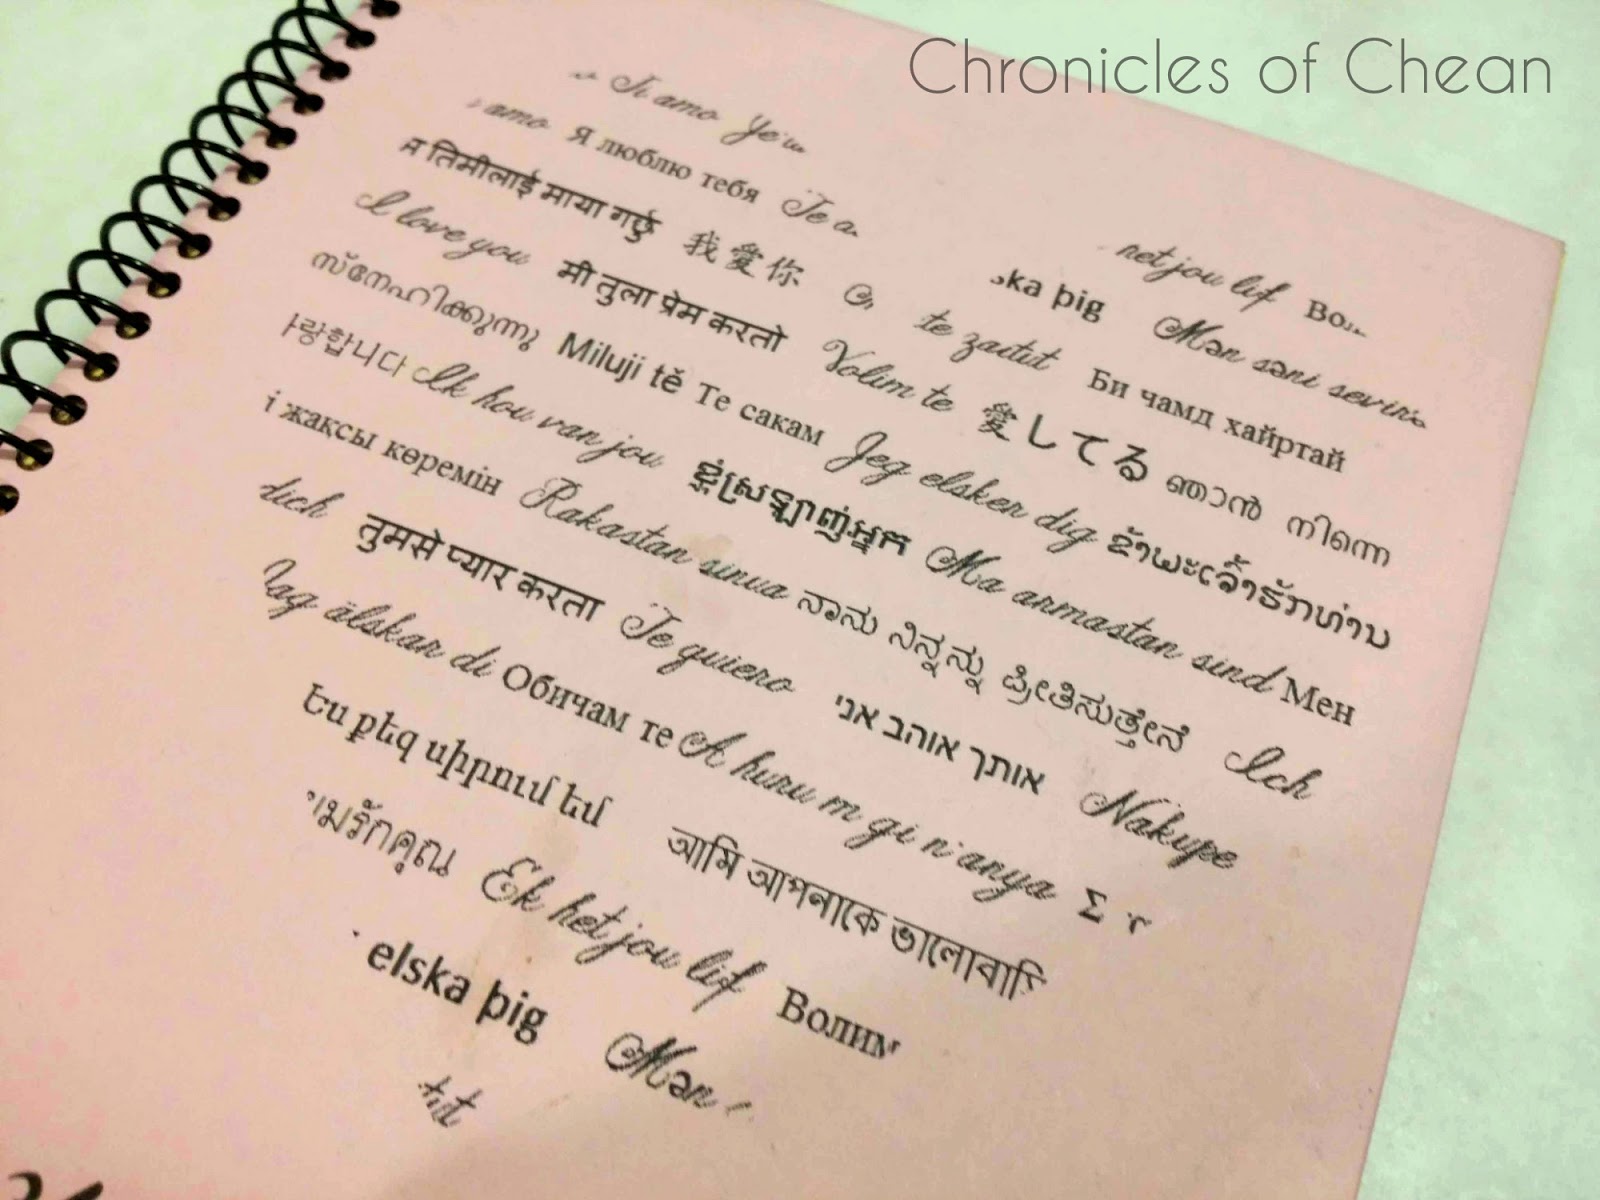 Chronicles of Chean
Ti amo het jou lif
amo Я люблю тебя Te þig Mən səni
तिमीलाई माया गर्छु 我愛你 te Би чамд хайртай
I love you मी तुला प्रेम करतो Volim te 愛してる ഞാൻ നിന്നെ
സ്നേഹിക്കുന്നു Miluji tě Те сакам Jeg elsker dig ຂ້າພະເຈົ້າຮັກທ່ານ
랑합니다 Ek hou van jou ខ្ញុំស្រឡាញ់អ្នក Ma armastan sind Мен
і жақсы көремін Rakastan sinua ನಾನು ನಿನ್ನನ್ನು ಪ್ರೀತಿಸುತ್ತೇನೆ Ich
dich तुमसे प्यार करता Te quiero אותך אוהב אני Nakupe
älskar di Обичам те A hurum gi n'anya Σ
Ես քեզ սիրում եմ আমি আপনাকে ভালোবাসি
มรักคุณ Ek het jou lif Волим
elska þig Mən